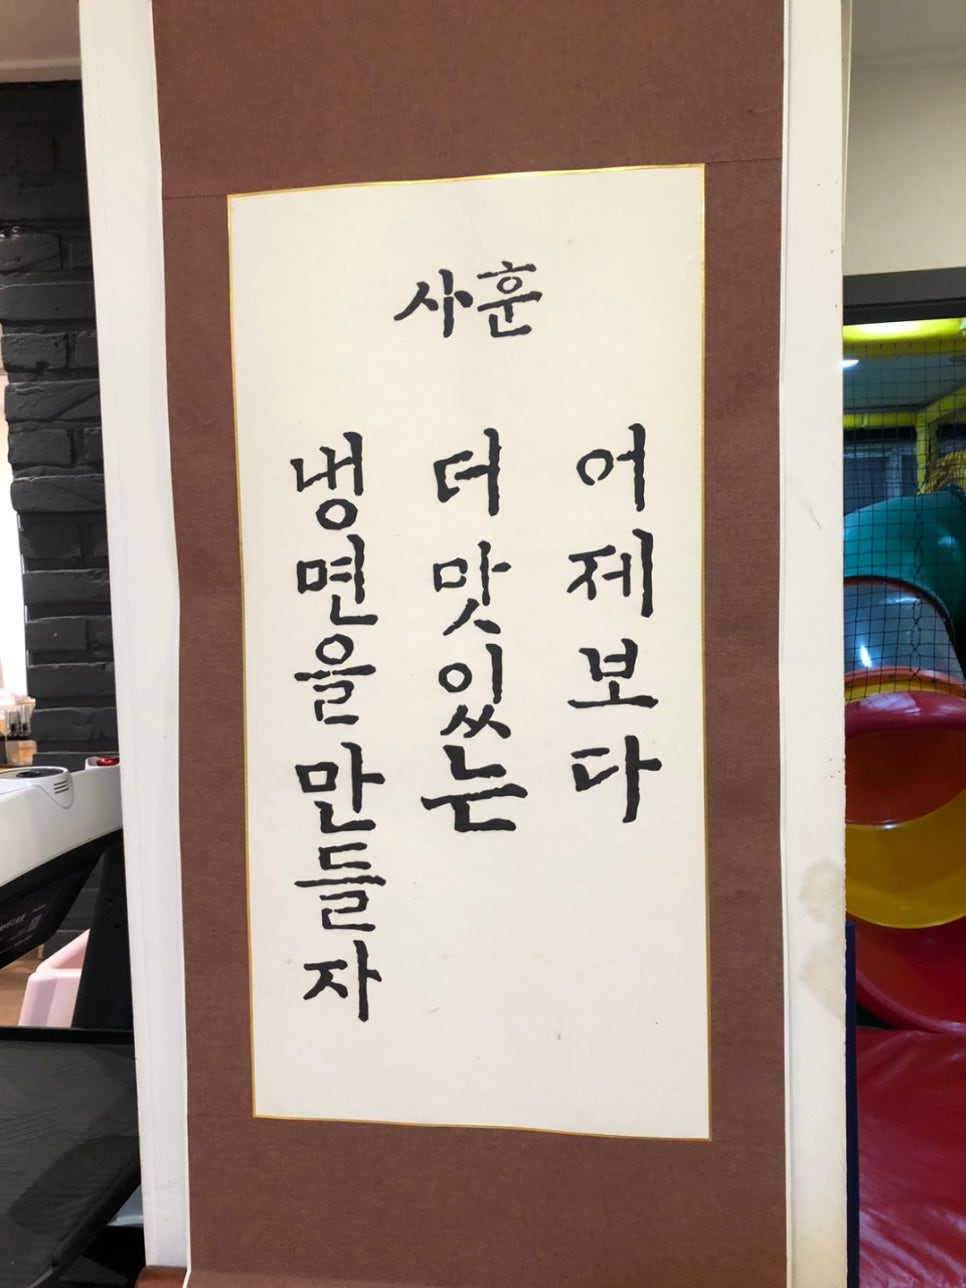 사훈
어제보다
더 맛있는
냉면을 만들자